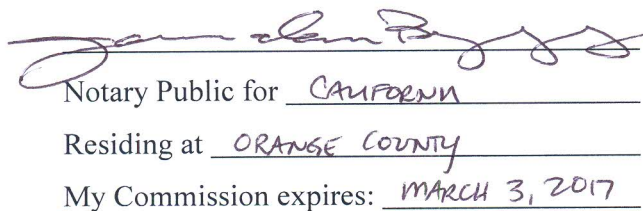 Notary Public for CALIFORNIA
Residing at ORANGE COUNTY
My Commission expires: MARCH 3, 2017